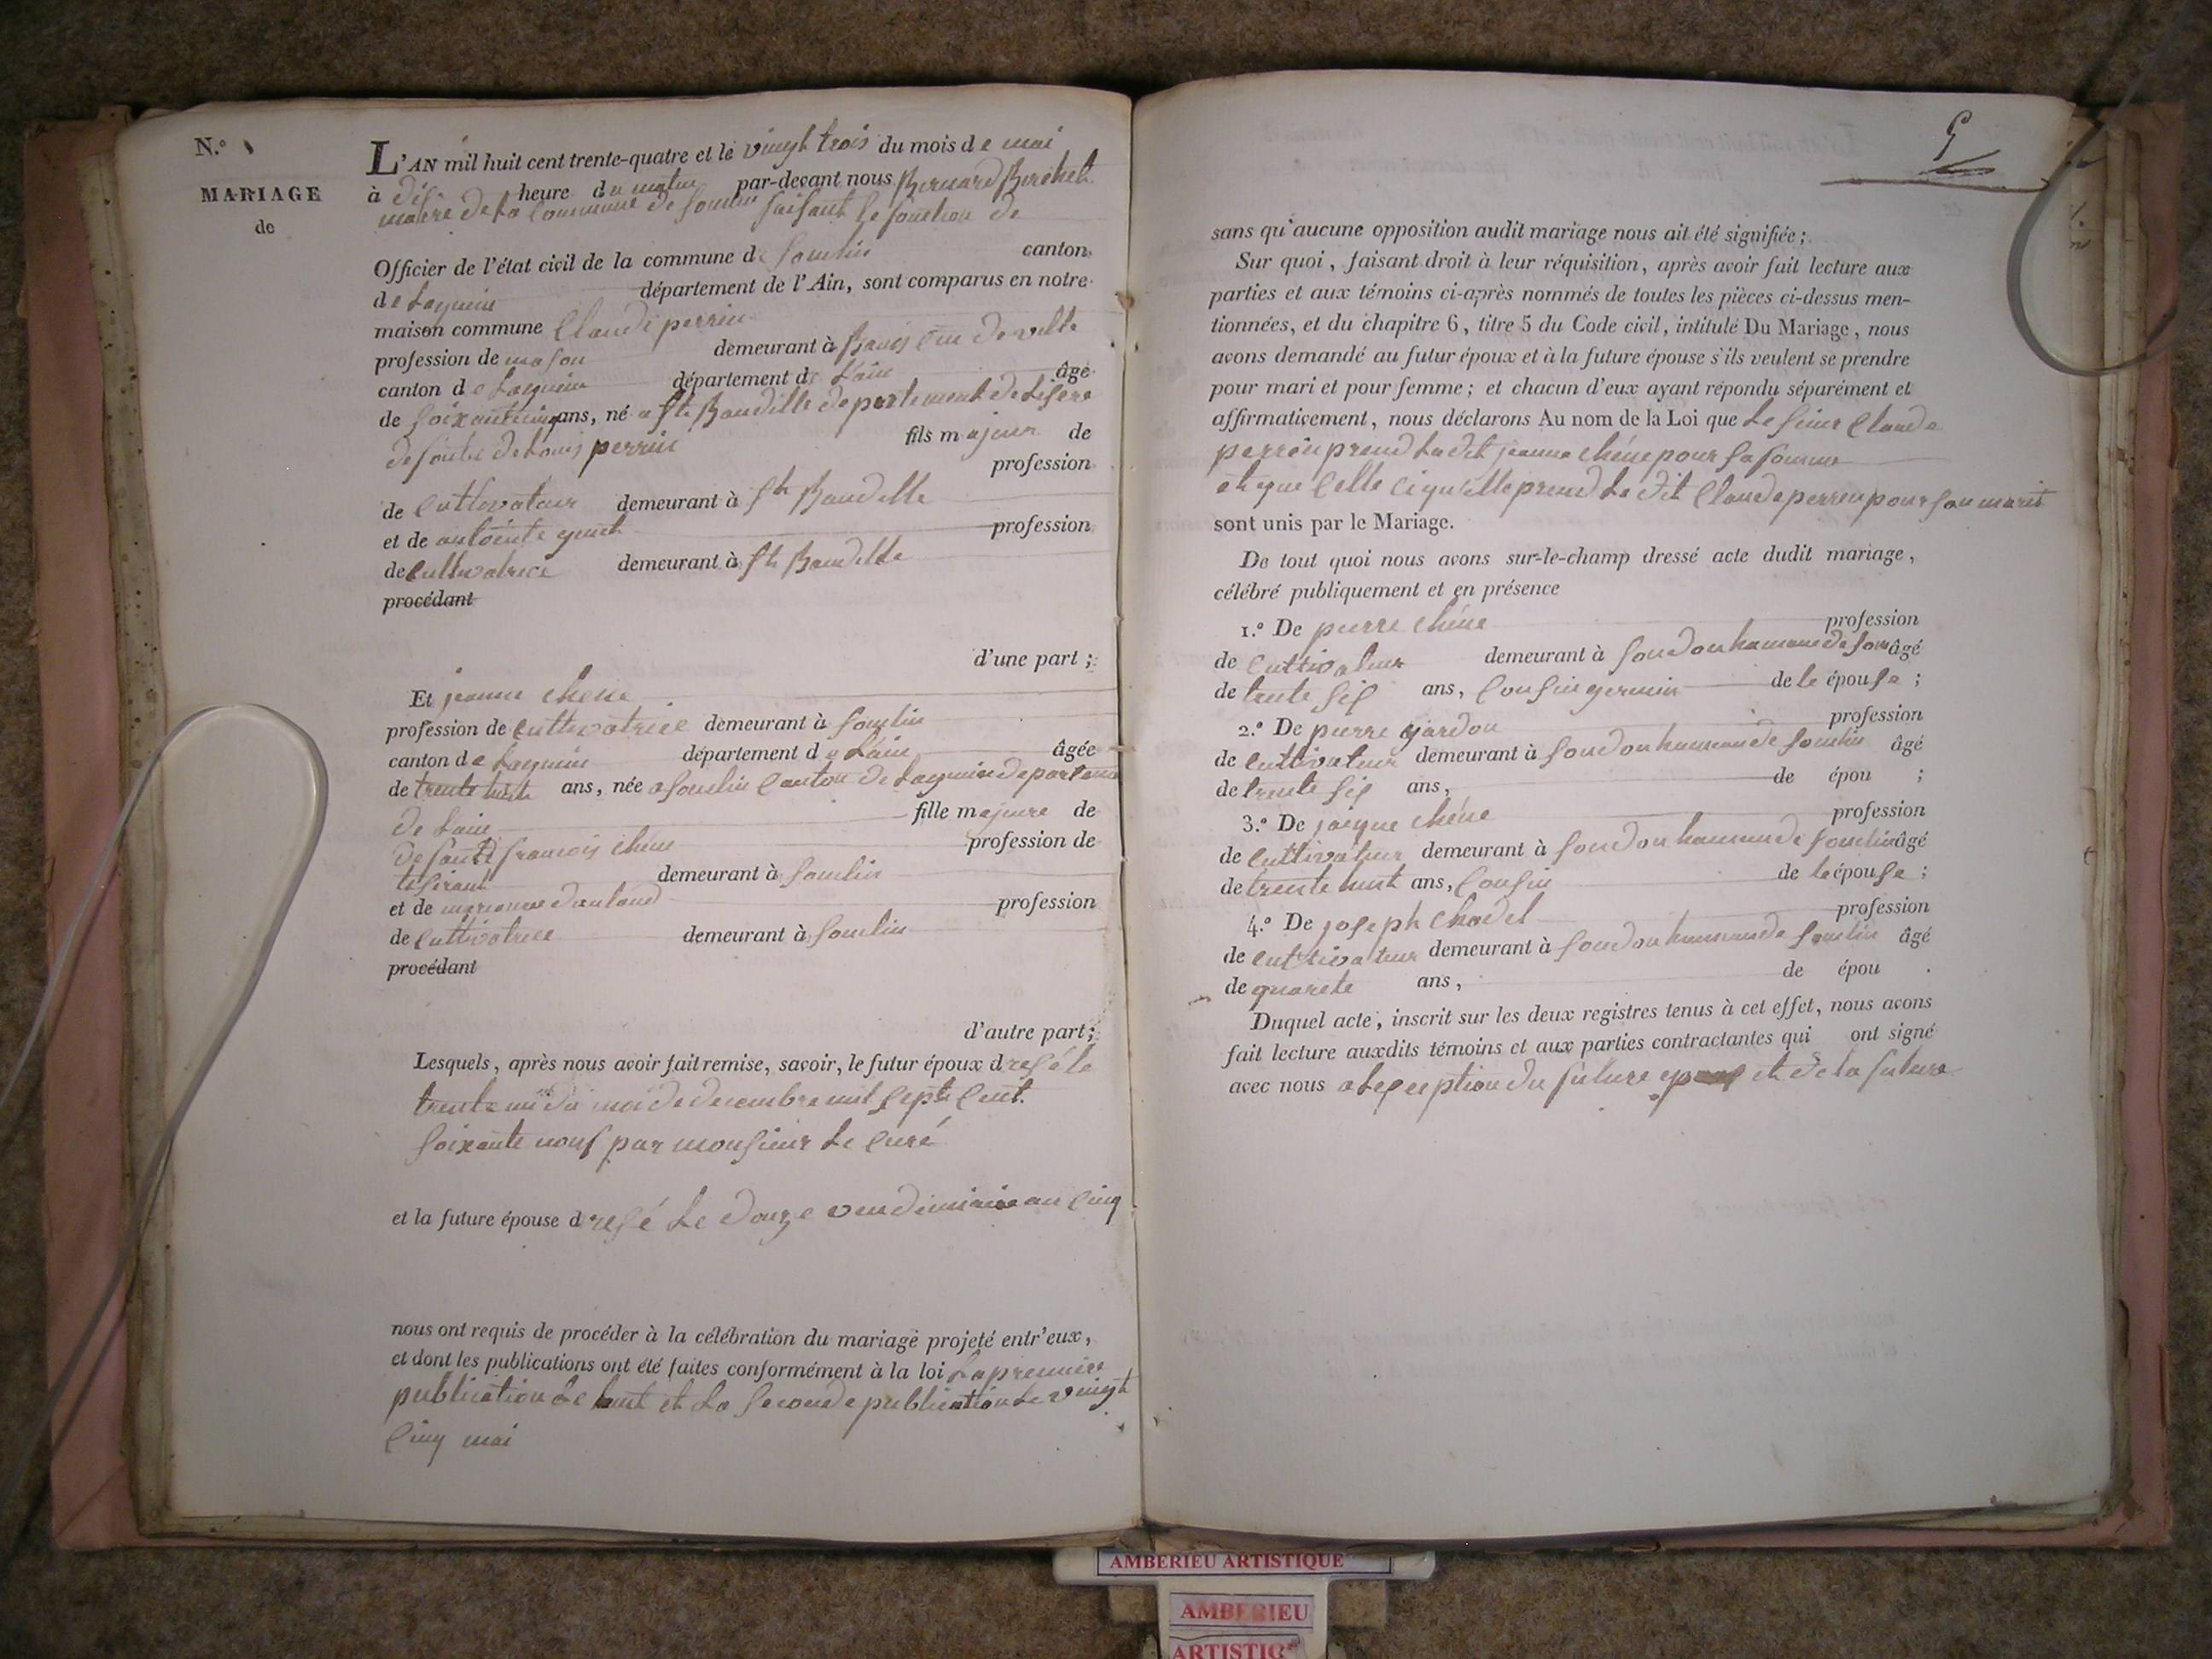 N.º
MARIAGE
de
L'AN mil huit cent trente-quatre et le vingt trois du mois de mai
à dis heure du matin par-devant nous Bernard Berchet
maire de la Commune de Souclin faisant le fonction de
Officier de l'état civil de la commune de Souclin canton
de Lagnieu département de l'Ain, sont comparus en notre
maison commune Claude perrin
profession de mason demeurant à
canton de Lagnieu département de L'ain âgé
de soixante cinq ans, né a St Baudille departement de Lisere
defunt de Louis perrin fils majeur de
profession
de Cultivateur demeurant à St Baudille
et de antointe profession
de Cultivatrice demeurant à St Baudille
procédant
d'une part ;
Et jeanne chene
profession de Cultivatrice demeurant à Souclin
canton de Lagnieu département de L'ain âgée
de trente huit ans, née a Souclin Canton de Lagnieu departement
de Lain fille majeure de
defunt francois chene profession de
tisirant demeurant à Souclin
et de marianne profession
de Cultivatrice demeurant à Souclin
procédant
d'autre part ;
Lesquels, après nous avoir fait remise, savoir, le futur époux dresé le
trente un du moi de decembre mil sept Cent
soixante nouf par monsieur Le Curé
et la future épouse dresé Le douze vendemiaire an Cinq
nous ont requis de procéder à la célébration du mariage projeté entr'eux,
et dont les publications ont été faites conformément à la loi La premiere
publication Le huit et La Seconde publication Le vingt
Cinq mai
sans qu'aucune opposition audit mariage nous ait été signifiée ;
Sur quoi, faisant droit à leur réquisition, après avoir fait lecture aux
parties et aux témoins ci-après nommés de toutes les pièces ci-dessus men-
tionnées, et du chapitre 6, titre 5 du Code civil, intitulé Du Mariage, nous
avons demandé au futur époux et à la future épouse s'ils veulent se prendre
pour mari et pour femme ; et chacun d'eux ayant répondu séparément et
affirmativement, nous déclarons Au nom de la Loi que Le sieur Claude
perrin prend La dit jeanne chéne pour sa femme
et que Celle Ci quelle prend Le dit Claude perrin pour son marit
sont unis par le Mariage.
De tout quoi nous avons sur-le-champ dressé acte dudit mariage,
célébré publiquement et en présence
1.º De pierre chéne profession
de Cultivateur demeurant à Soudon hamau de Sou âgé
de trente sis ans, Cousin germin de le épouse ;
2.º De pierre profession
de Cultivateur demeurant à Soudon hamau de Souclin âgé
de trente sis ans, de épou ;
3.º De jacque chéne profession
de Cultivateur demeurant à Soudon hamau de Souclin âgé
de trente huit ans, Cousin de le épouse ;
4.º De joseph Chadel profession
de Cultivateur demeurant à Soudon hamau de Souclin âgé
de quarete ans, de épou .
Duquel acte, inscrit sur les deux registres tenus à cet effet, nous avons
fait lecture auxdits témoins et aux parties contractantes qui ont signé
avec nous a Lesception du future et de la future
AMBERIEU ARTISTIQUE
AMBERIEU
ARTISTIQ